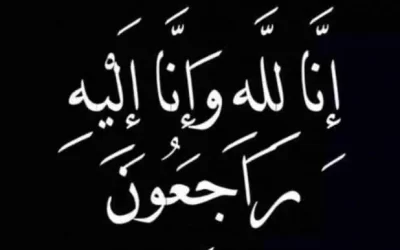 إِنَّا لِلَّه وَإِنَّا إِلَيْهِ
رَاجَعُونَ